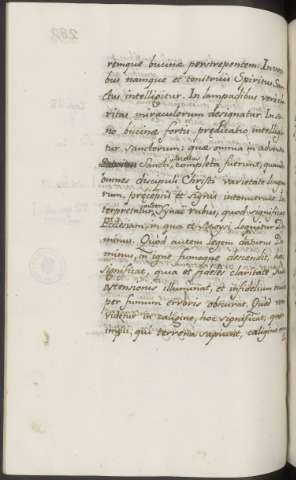 remque bucinæ perstrepentem. In voci
bus namque et tonitruis Spiritus San
ctus intelligitur. In lampadibus vero cla
ritas miraculorum designatur. In so
no bucinæ fortis prædicatio intelligi
tur sanctorum: quæ omnia in adventu
Spiritus Sancti completa fuerunt, quando
omnes discipuli Christi varietate lingua
rum, præceptis et signis intonuerunt. In
terpretatur Synai rubus, quod significat
Ecclesiam, in qua et Moysi loquitur Do
minus. Quod autem legem daturus Do
minus, in igne fumoque descendit, hoc
significat, quia et fideles claritate Suæ
ostensionis illuminat, et infidelium
per fumum erroris obscurat. Quod
videtur in caligine, hoc significat, quod
impii, qui terrena sapiunt, caligine